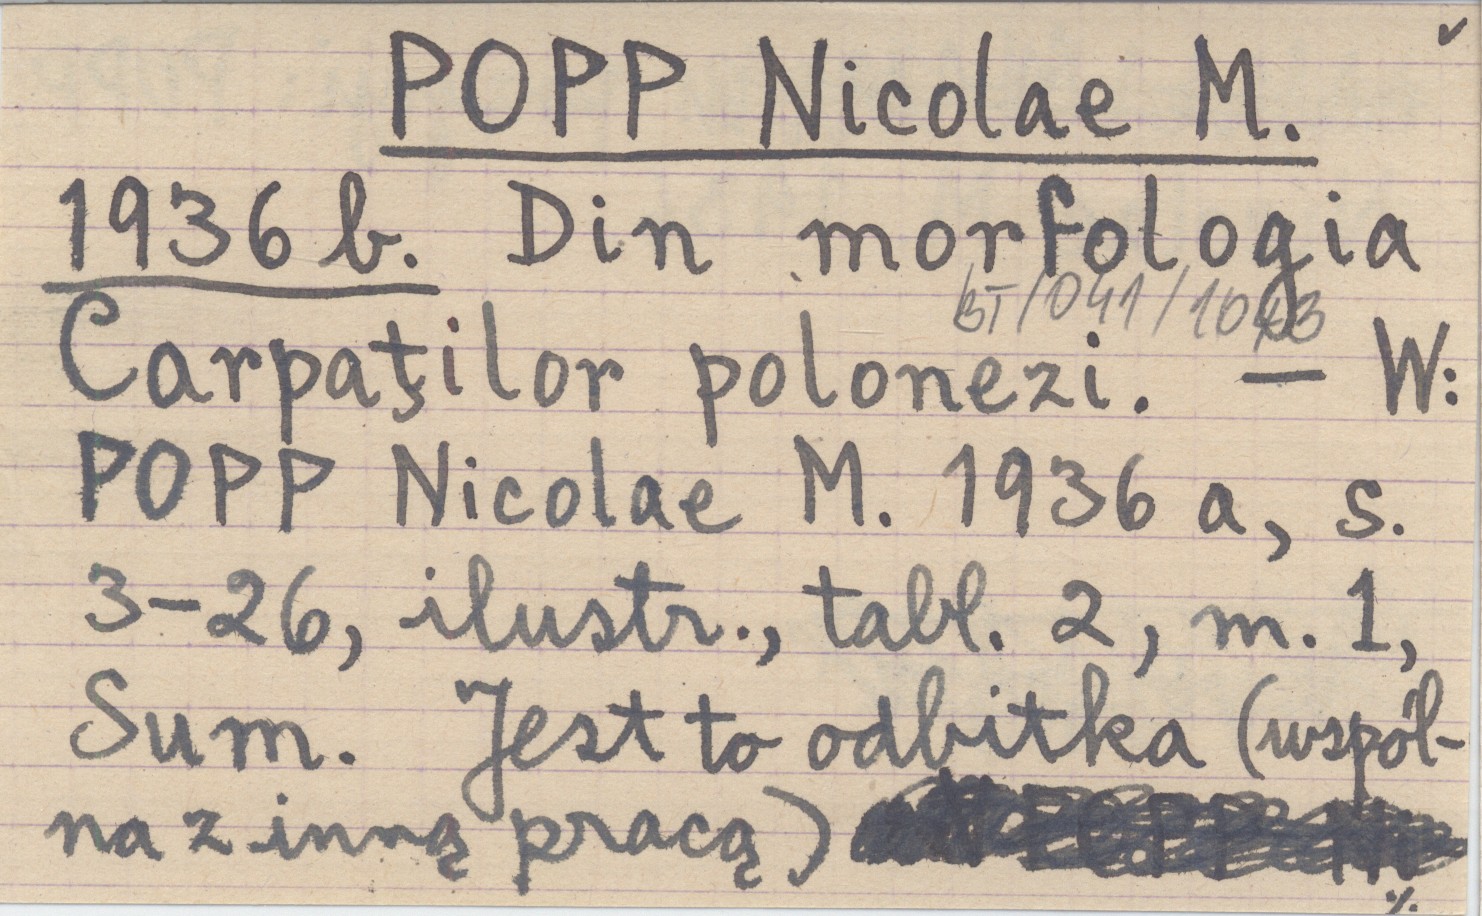 POPP Nicolae M.
1936 b. Din morfologia
BT/041/1043
Carpaţilor polonezi. — W:
POPP Nicolae M. 1936 a, s.
3-26, ilustr., tabl. 2, m. 1,
Sum. Jest to odbitka (wspól-
na z inną pracą)
%.